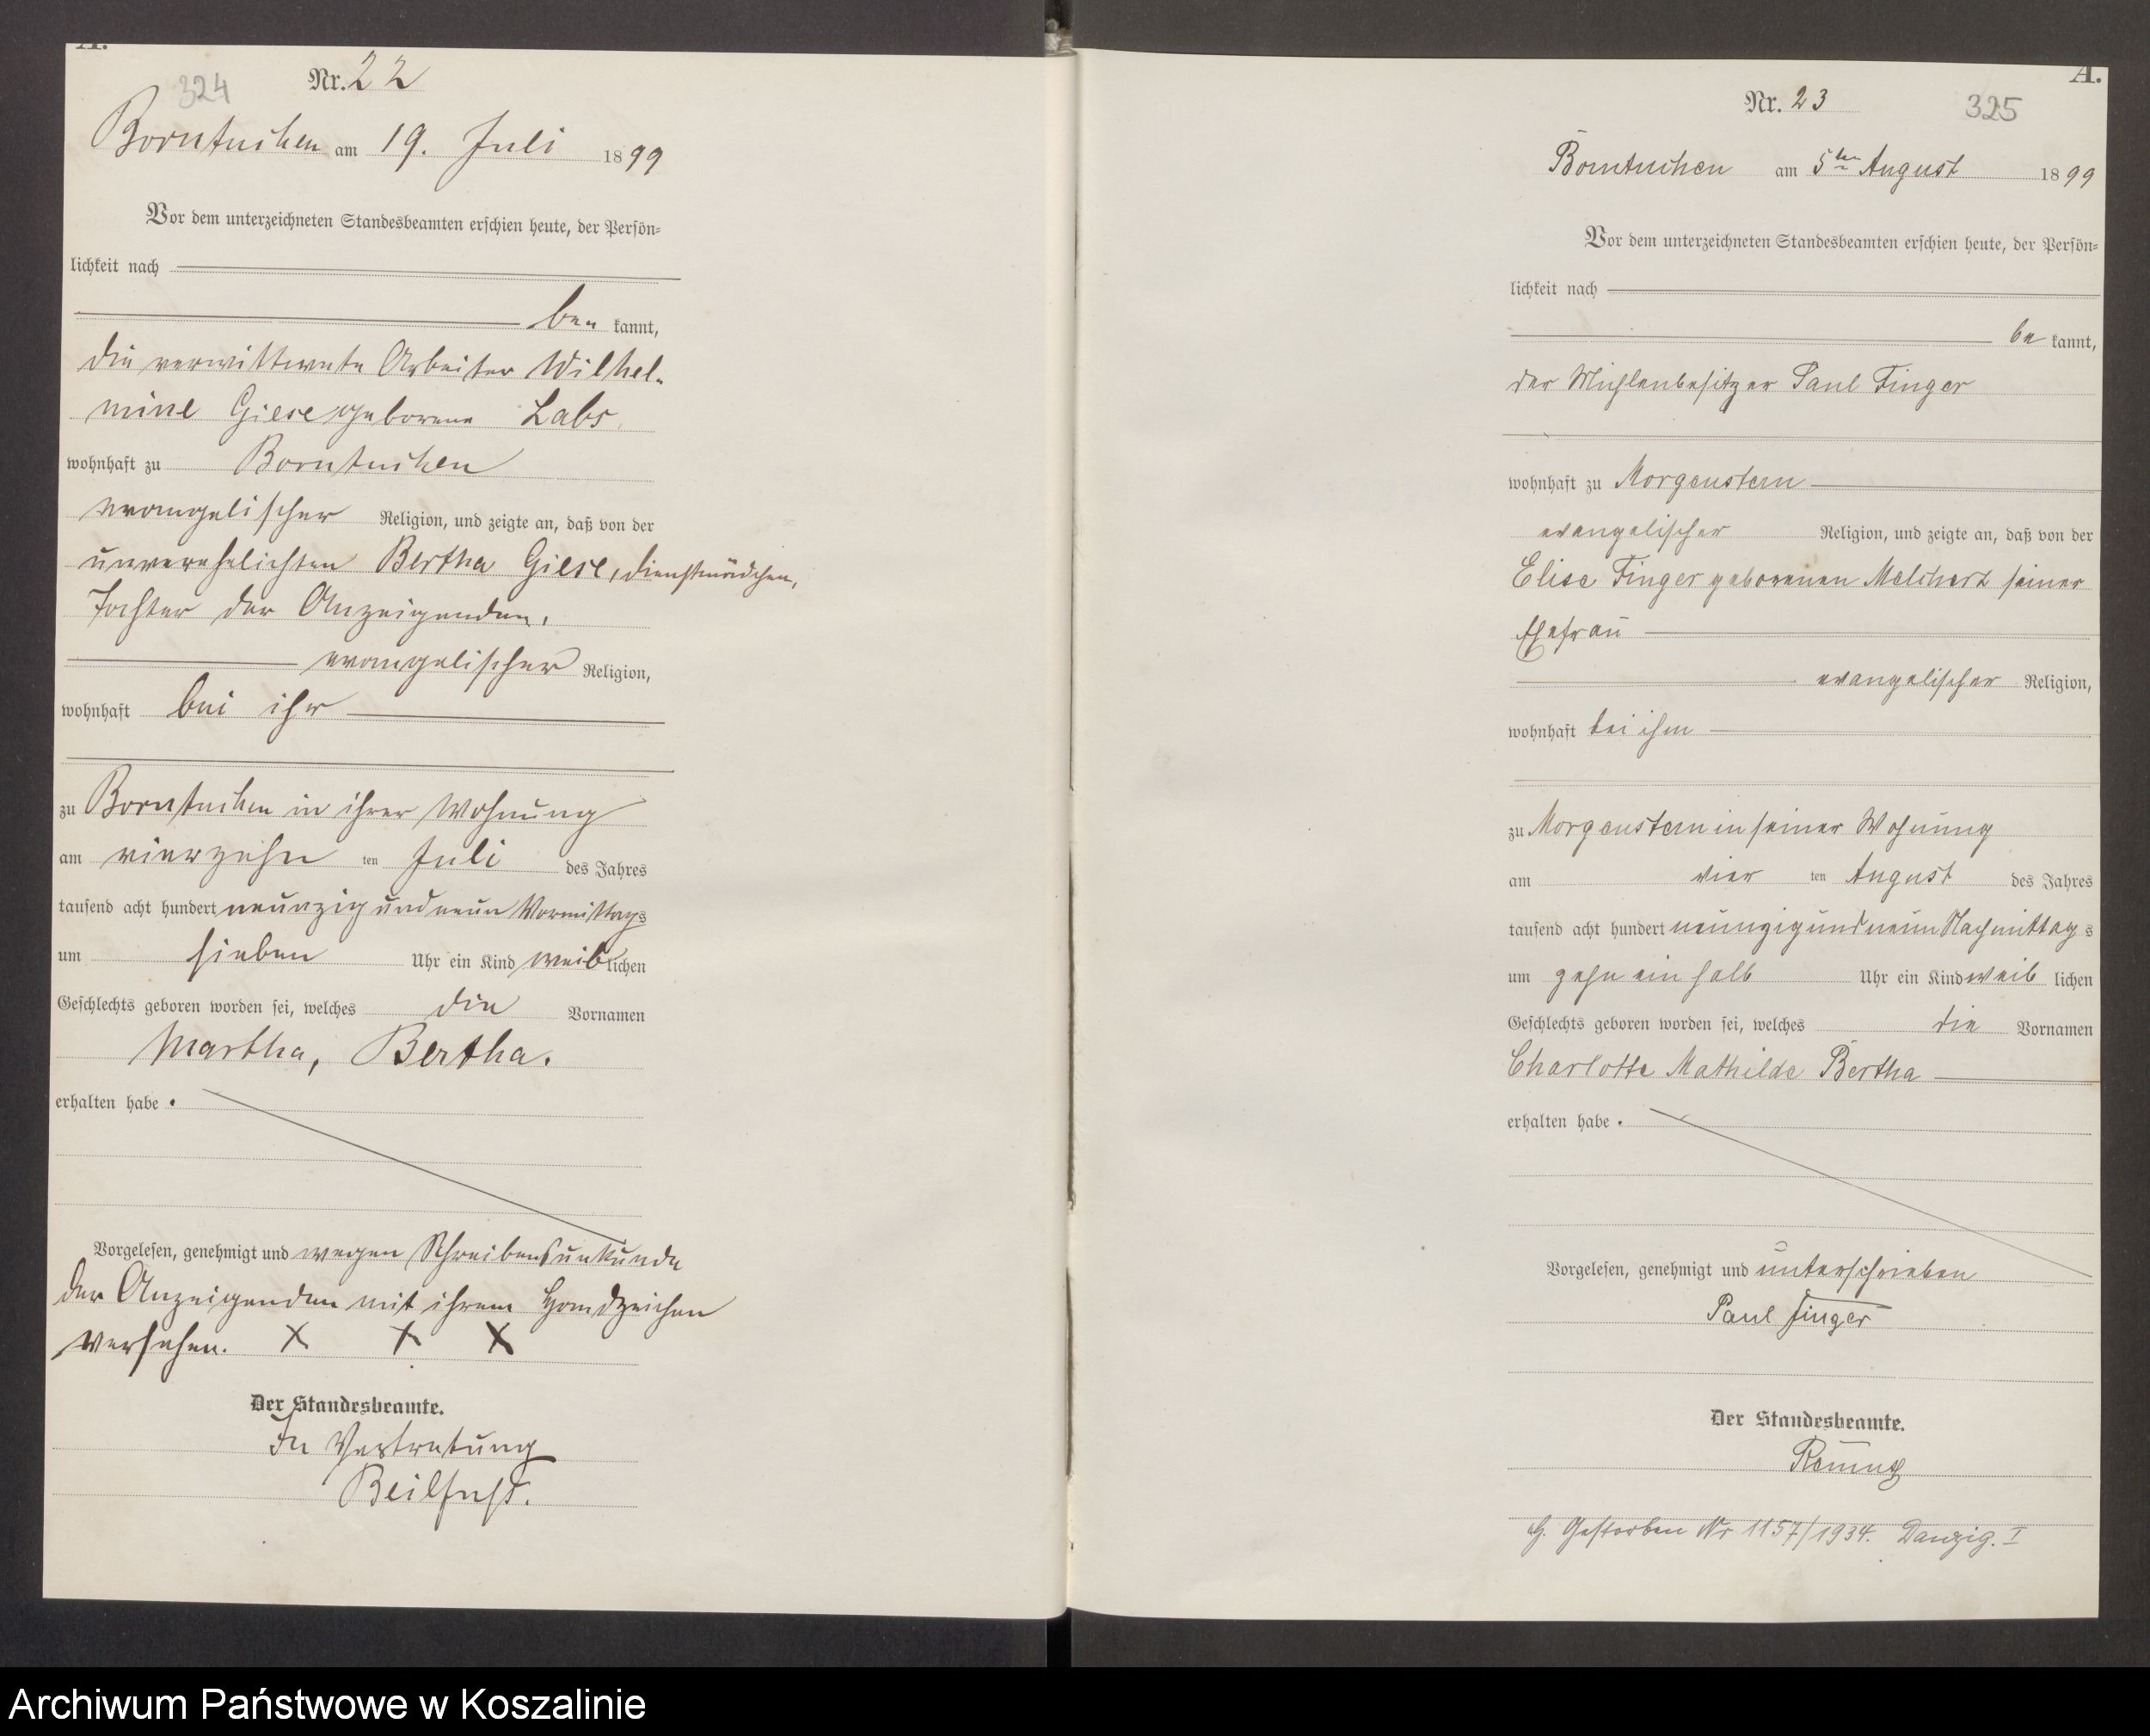 A.
324
Nr. 22
Borntuchen am 19. Juli 1899
Vor dem unterzeichneten Standesbeamten erschien heute, der Persön-
lichkeit nach
be kannt,
die verwittwete Arbeiter Wilhel-
mine Giese geborene Labs
wohnhaft zu Borntuchen
evangelischer Religion, und zeigte an, daß von der
unverehelichten Bertha Giese, Dienstmädchen,
Tochter der Anzeigenden,
evangelischer Religion,
wohnhaft bei ihr
zu Borntuchen in ihrer Wohnung
am vierzehn ten Juli des Jahres
tausend acht hundert neunzig und neun Vormittags
um sieben Uhr ein Kind weiblichen
Geschlechts geboren worden sei, welches die Vornamen
Martha, Bertha.
erhalten habe.
Vorgelesen, genehmigt und wegen Schreibensunkunde
der Anzeigenden mit ihrem Handzeichen
versehen. X X X
Der Standesbeamte.
In Vertretung
Beilfuß.
A.
Nr. 23
325
Borntuchen am 5ten August 1899
Vor dem unterzeichneten Standesbeamten erschien heute, der Persön-
lichkeit nach
be kannt,
der Mühlenbesitzer Paul Finger
wohnhaft zu Morgenstern
evangelischer Religion, und zeigte an, daß von der
Elise Finger geborenen Melchert seiner
Ehefrau
evangelischer Religion,
wohnhaft bei ihm
zu Morgenstern in seiner Wohnung
am vier ten August des Jahres
tausend acht hundert neunzig und neun Nachmittags
um zehn ein halb Uhr ein Kind weib lichen
Geschlechts geboren worden sei, welches die Vornamen
Charlotte Mathilde Bertha
erhalten habe.
Vorgelesen, genehmigt und unterschrieben
Paul Finger
Der Standesbeamte.
G. Gestorben Nr 1157/1934. Danzig. I
Archiwum Państwowe w Koszalinie